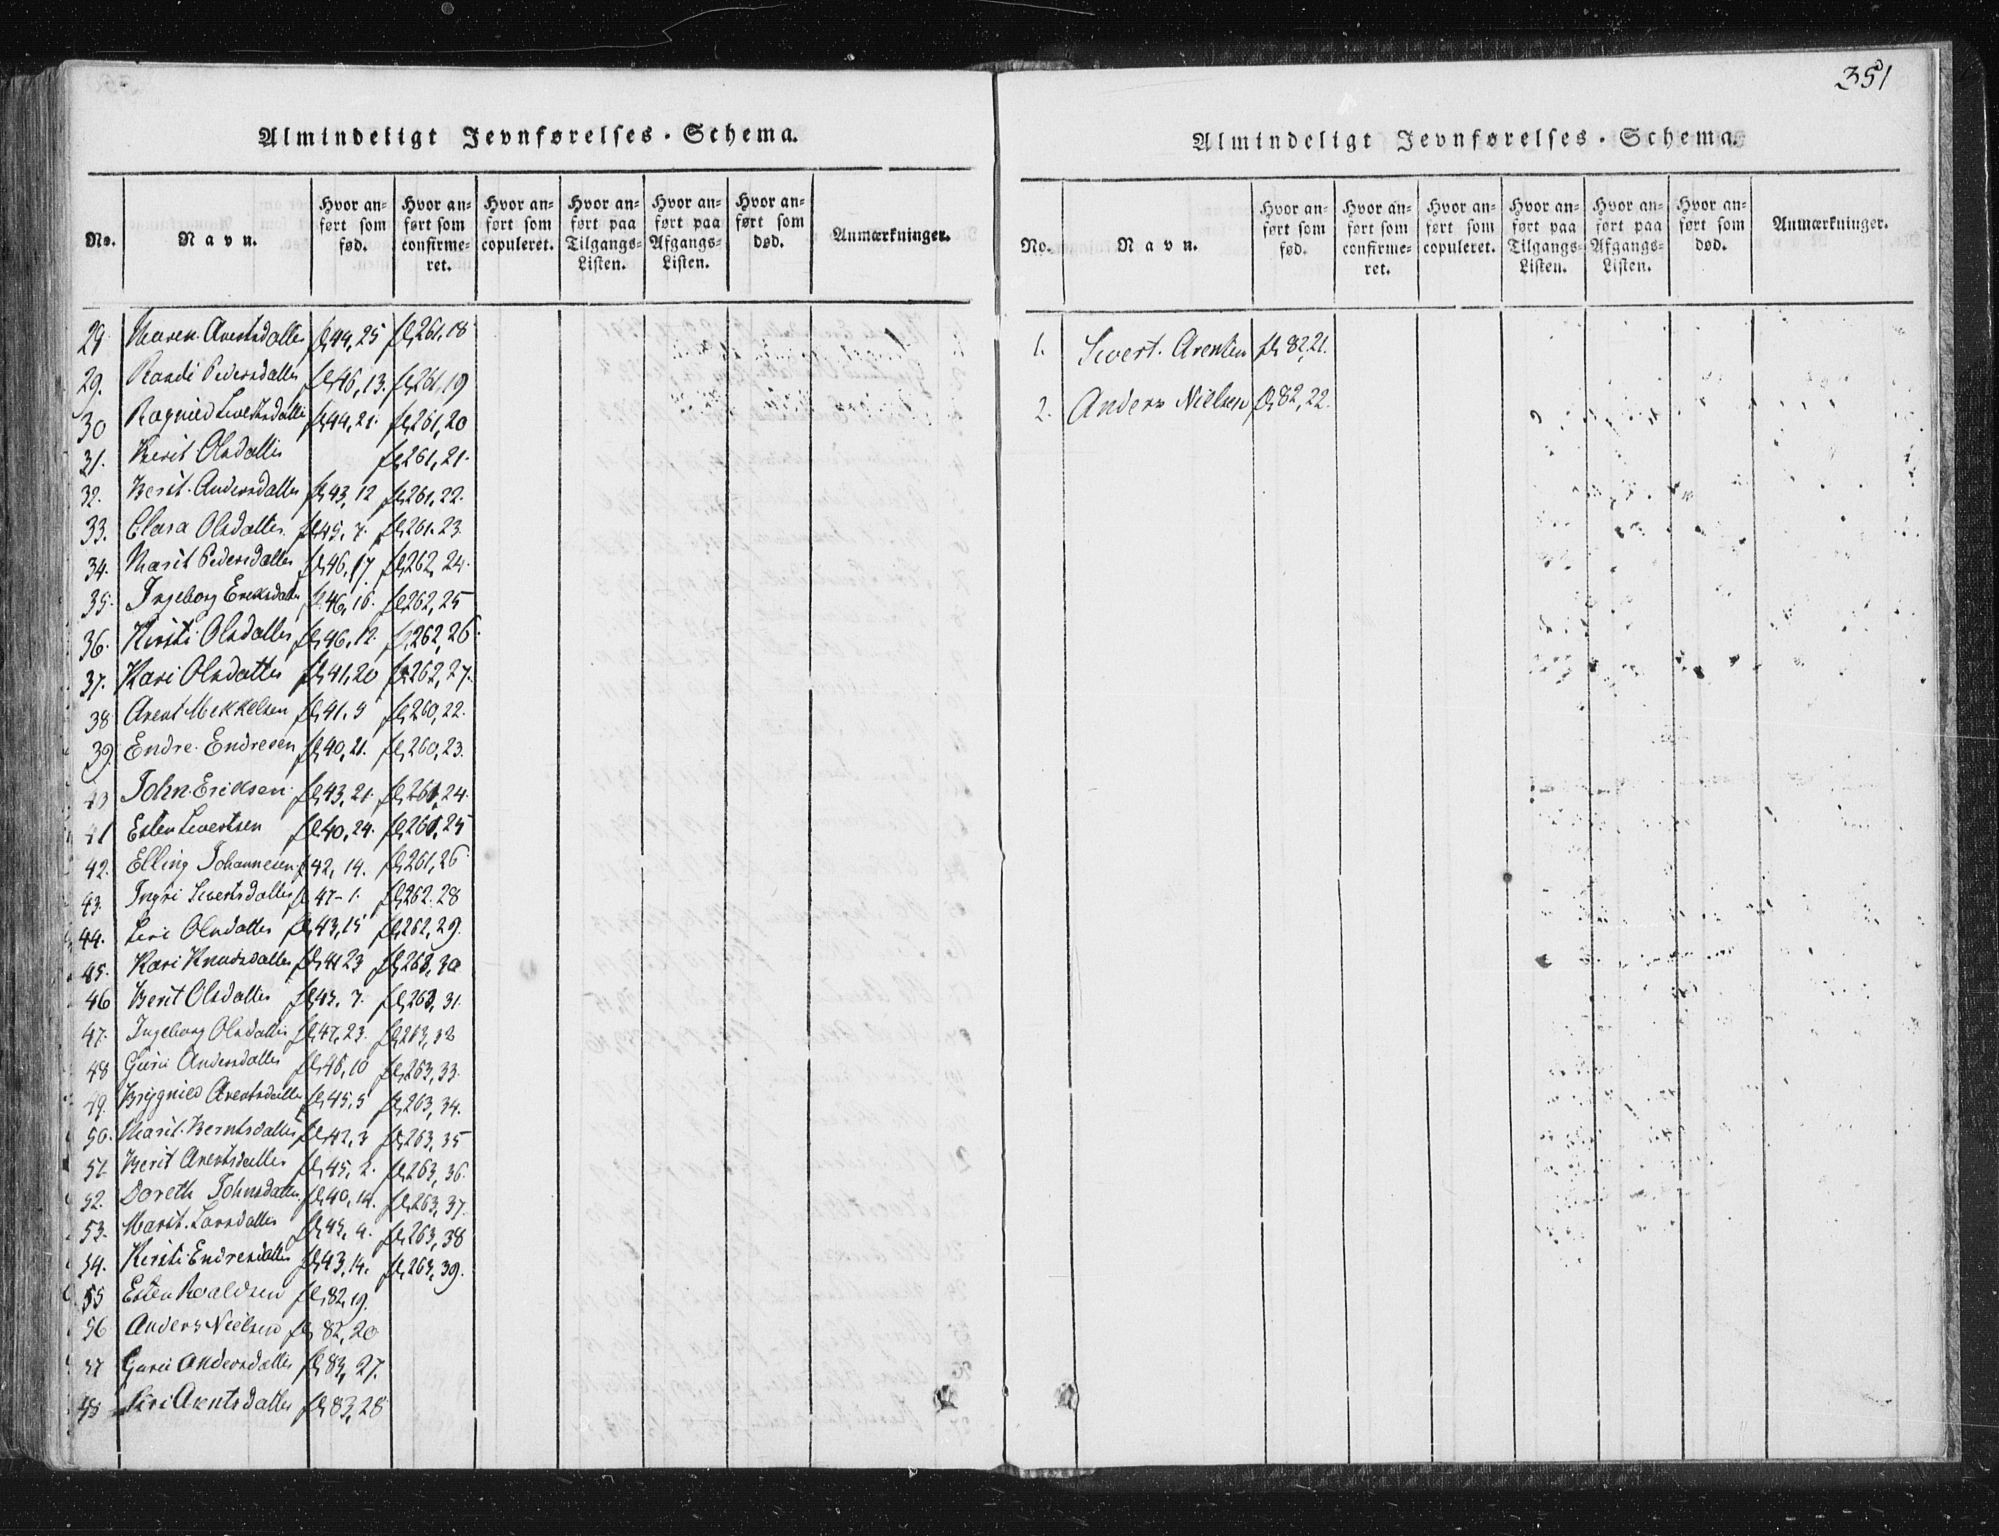 Almindeligt Jevnførelses-Schema.
No. Navn. Hvor anført som fød. Hvor anført som confirmeret. Hvor anført som copuleret. Hvor anført paa Tilgangs-Listen. Hvor anført paa Afgangs-Listen. Hvor anført som død. Anmærkninger.
29. Maren Arentsdatter fl 44, 25 fl 261, 18
29. Randi Pedersdatter fl 46, 13. fl 261, 19
30 Ragnild Sivertsdatter fl 44, 21. fl 261, 20
31. Berit Olsdatter fl 261, 21.
32. Berit Andersdatter fl 43, 12 fl 261, 22.
33. Clara Olsdatter fl 45, 7. fl 261. 23.
34. Marit Pedersdatter fl 46, 17 fl 262, 24.
35. Ingeborg Eriksdatter fl 46, 16. fl 262, 25
36. Kirsti Olsdatter fl 46, 12. fl 262, 26.
37. Kari Olsdatter fl 41, 20 fl 262, 27.
38 Arent Mikkelsen fl 41, 9 fl 260, 22.
39. Endre Endresen fl 40, 21. fl 260, 23.
John Eriksen fl 43, 21. fl 261, 24.
41 Esten Sivertsen fl 40, 24. fl 261, 25
42. Elling Johannesen fl 42, 14. fl 261, 26
43. Ingri Sivertsdatter fl 47-1. fl 262. 28
44. Siri Olsdatter fl 43, 15 fl 262, 29.
45. Kari Knudsdatter fl 41 23 fl 263, 30
46 Berit Olsdatter fl 45, 7. fl 263, 31.
47. Ingeborg Olsdatter fl 47, 23. fl 263, 32
48 Guru Andersdatter fl 46, 10 fl 263, 33.
49. Brygnild Arentsdatter fl 45, 5 fl 263, 34.
50. Marit Berntsdatter fl 42, 3 fl 263, 35
51 Berit Arentsdatter fl 45, 2. fl 263, 36.
52. Doreth Johnsdatter fl 40, 14. fl 263, 37.
53. Marit Larsdatter fl 45, 4. fl 263, 38
54. Kirsti Endresdatter fl 43, 14. fl 263, 39.
55 Esten Roaldsen fl 82, 19.
56 Anders Nielsen fl 82, 20
57 Guru Andersdatter fl 83, 27.
58 Siri Arentsdatter fl 83, 28
351
Almindeligt Jevnførelses-Schema.
No. Navn. Hvor anført som fød. Hvor anført som confirmeret. Hvor anført som copuleret. Hvor anført paa Tilgangs-Listen. Hvor anført paa Afgangs-Listen. Hvor anført som død. Anmærkninger.
1. Sivert Arentsen fl 82, 21.
2. Anders Nielsen fl 82, 22.